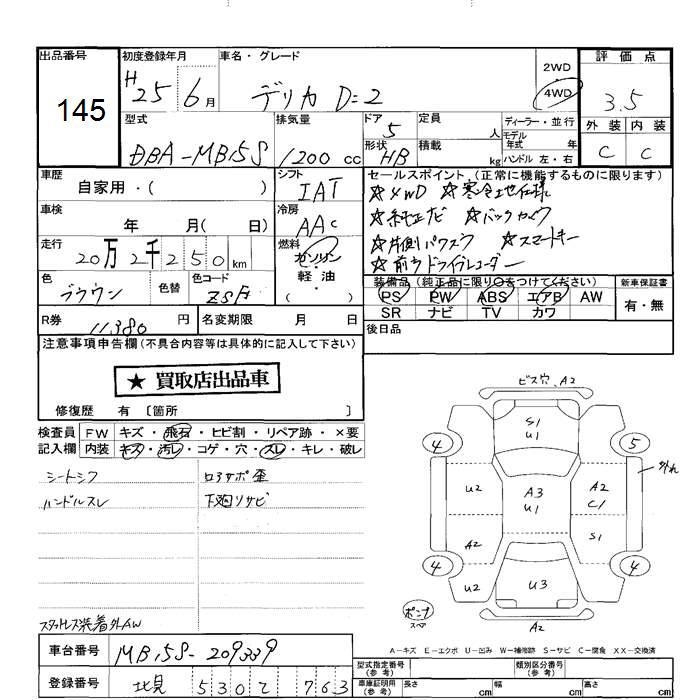 出品番号
145
初度登録年月
H 25 6月
車名・グレード
デリカ D=2
2WD
4WD
評価点
3.5
外装 内装
C C
型式
DBA-MB15S
排気量
1200 cc
ドア
5
形状
HB
定員
人
積載
kg
ディーラー・並行
モデル年式 年
ハンドル 左・右
車歴
自家用・( )
シフト
IAT
車検
年 月( 日)
冷房
AAC
走行
20万2千250km
燃料
ガソリン
軽・油
( )
色
ブラウン
色替
色コード
R券
11,380 円
名変期限 月 日
セールスポイント(正常に機能するものに限ります)
☆4WD ☆寒冷地仕様
☆純正ナビ ☆バックカメラ
☆片側パワスラ ☆スマートキー
☆前方ドライブレコーダー
装備品(純正品に限り○をつけてください)
PS PW ABS エアB AW
SR ナビ TV カワ
新車保証書
有・無
後日品
注意事項申告欄(不具合内容等は具体的に記入して下さい)
★買取店出品車
修復歴 有〔箇所 〕
検査員記入欄
FW キズ・飛石・ヒビ割・リペア跡・×要
内装 キズ・汚レ・コゲ・穴・スレ・キレ・破レ
シートシワ
ハンドルスレ
ロアサポ歪
下廻リサビ
スタットレス装着外AW
車台番号
MB15S-209339
登録番号
北見 530 て 763
ビス穴、A2
S1
U1
4
5
外れ
U2
A3
U1
A2
C1
A2
S1
4
4
U2
U3
U2
ポンプ
スペア
A2
A-キズ E-エクボ U-凹み W-補修跡 S-サビ C-腐食 XX-交換済
型式指定番号(参考)
類別区分番号(参考)
車庫証明用(参考)
長さ cm 幅 cm 高さ cm